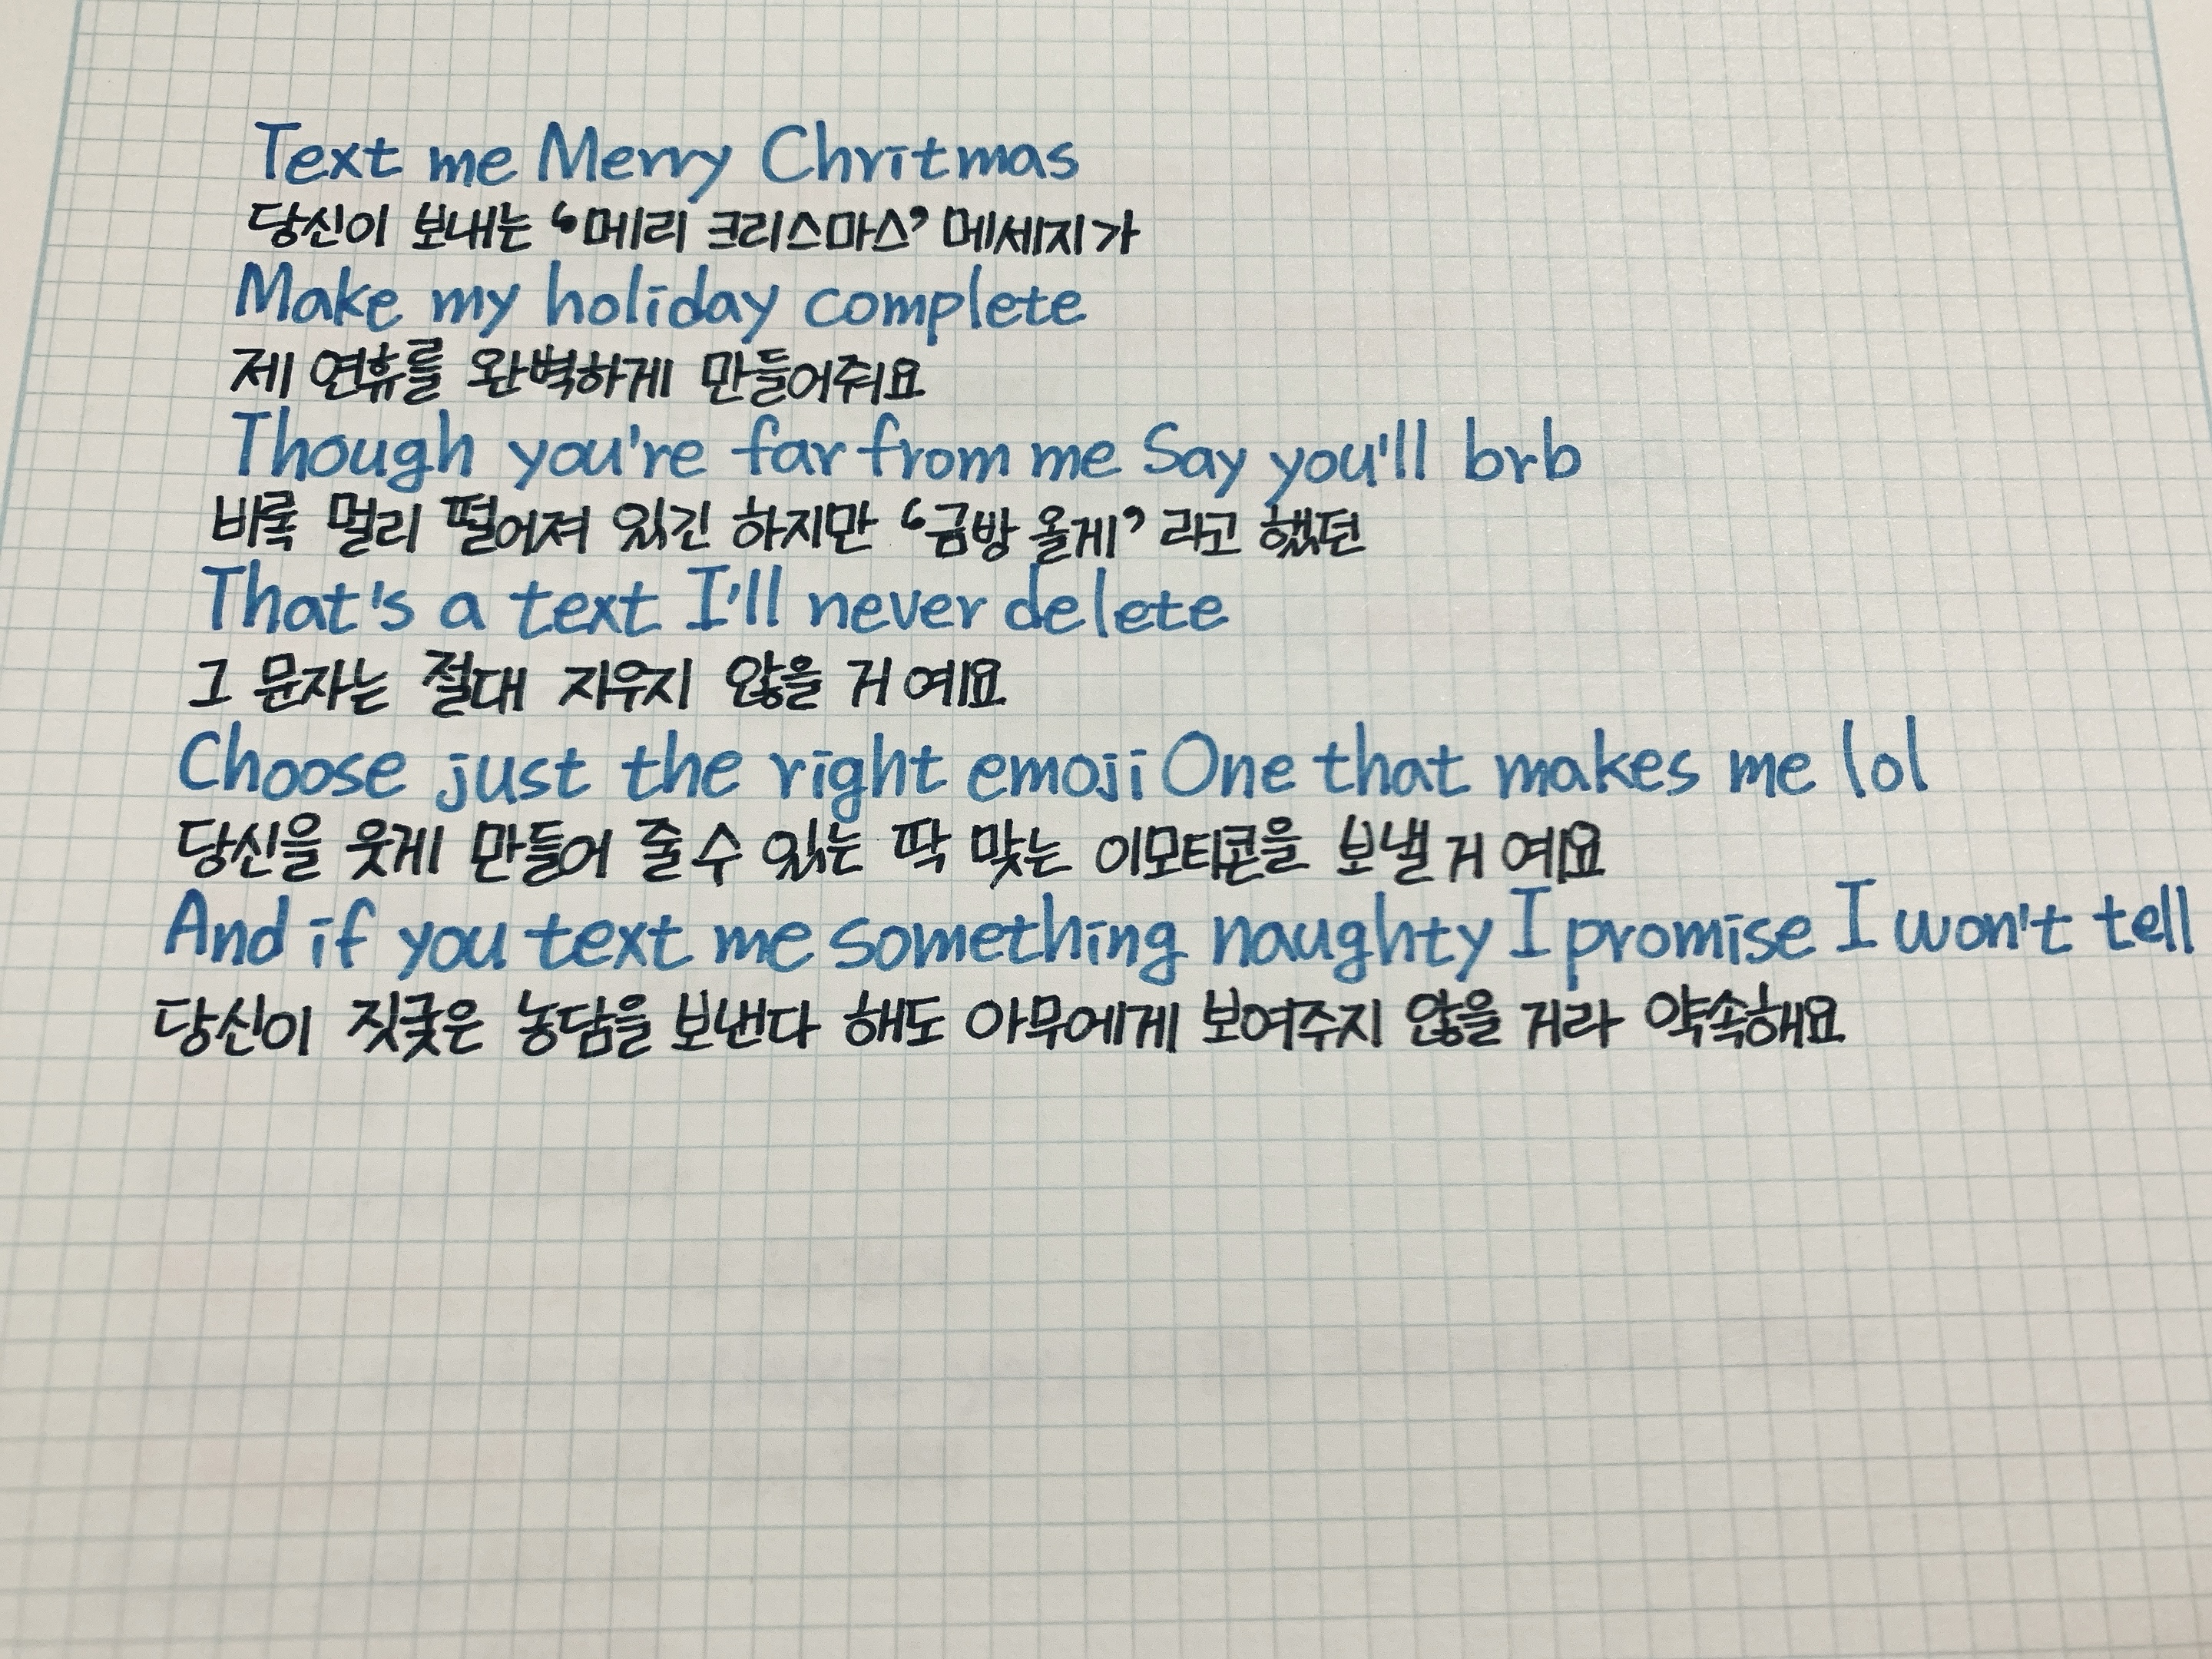 Text me Merry Chritmas
당신이 보내는 ‘메리 크리스마스’ 메세지가
Make my holiday complete
제 연휴를 완벽하게 만들어줘요
Though you're far from me Say you'll brb
비록 멀리 떨어져 있긴 하지만 ‘금방 올게’ 라고 했던
That's a text I'll never delete
그 문자는 절대 지우지 않을 거예요
Choose just the right emoji One that makes me lol
당신을 웃게 만들어 줄 수 있는 딱 맞는 이모티콘을 보낼 거예요
And if you text me something naughty I promise I won't tell
당신이 짓궂은 농담을 보낸다 해도 아무에게 보여주지 않을 거라 약속해요